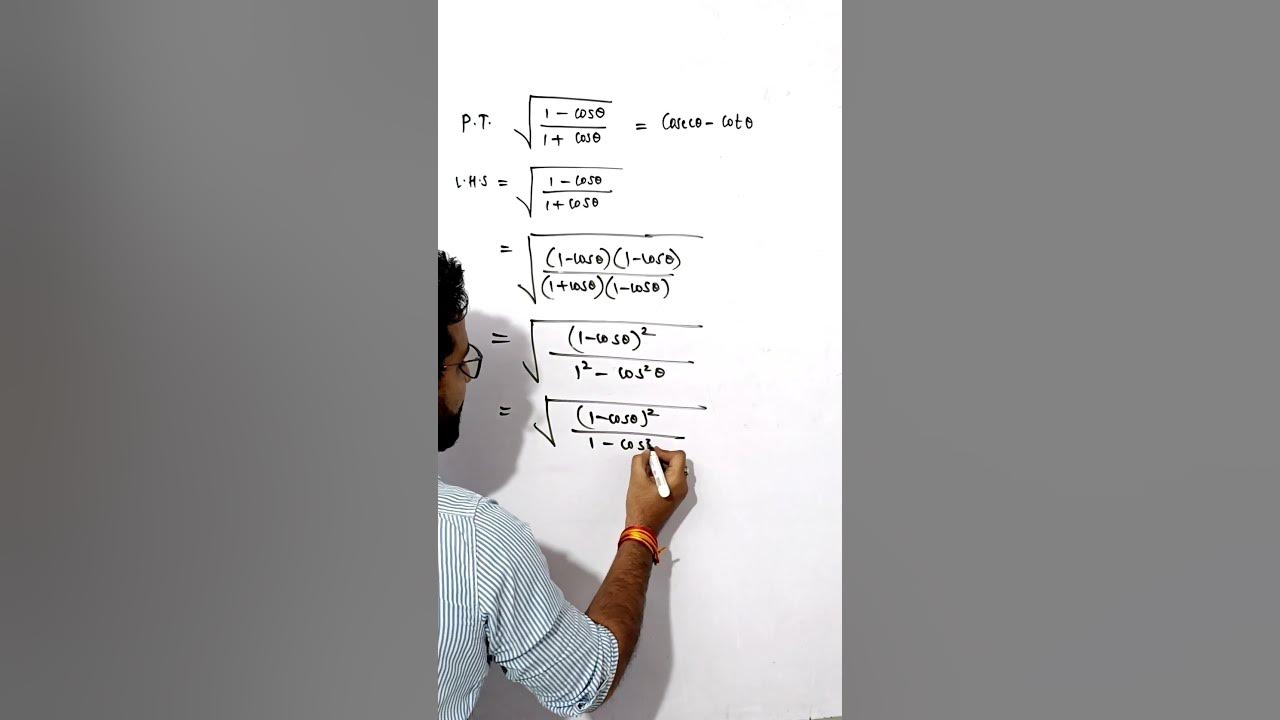 P.T. √((1 - cosθ)/(1 + cosθ)) = Cosecθ - cotθ
L.H.S = √((1 - cosθ)/(1 + cosθ))
= √((1-cosθ)(1-cosθ)/(1+cosθ)(1-cosθ))
= √((1-cosθ)²/(1² - cos²θ))
= √((1-cosθ)²/(1 - cos²